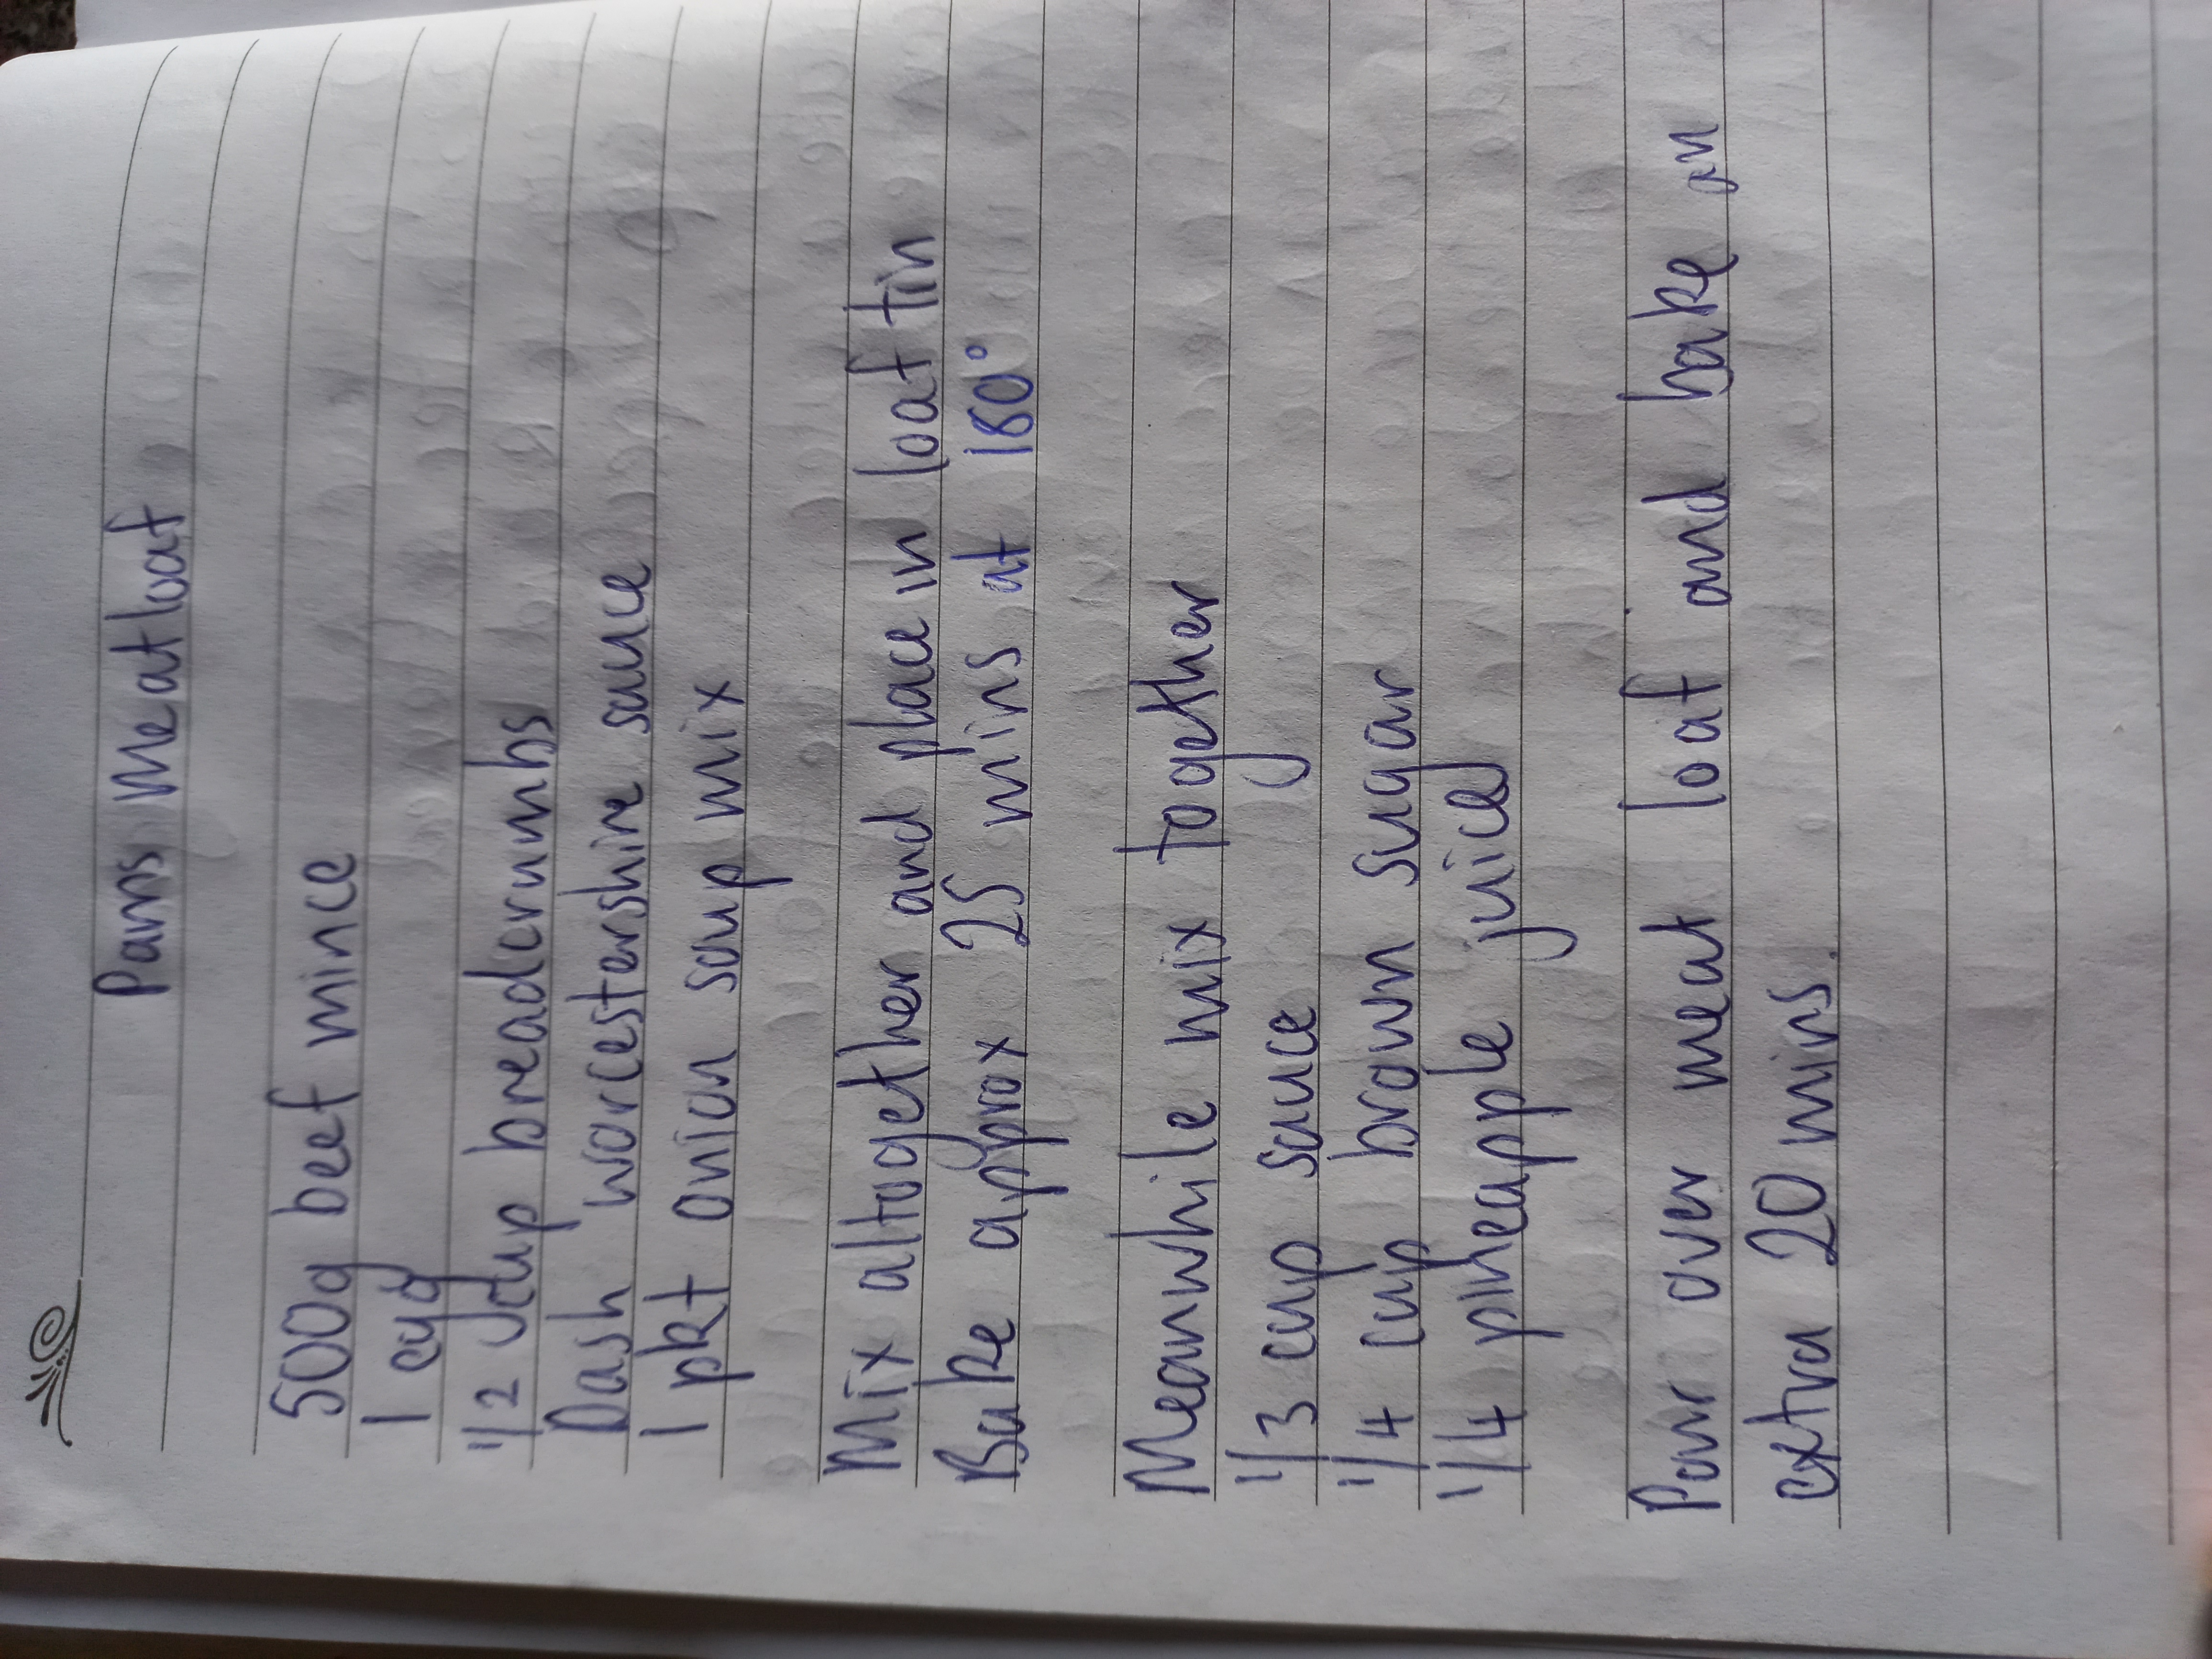 Pams Meatloaf
500g beef mince
1 egg
1/2 cup breadcrumbs
Dash worcestershire sauce
1 pkt onion soup mix
Mix altogether and place in loaf tin
Bake approx 25 mins at 180°
Meanwhile mix together
1/3 cup sauce
1/4 cup brown sugar
1/4 pineapple juice
Pour over meat loaf and bake an
extra 20 mins.